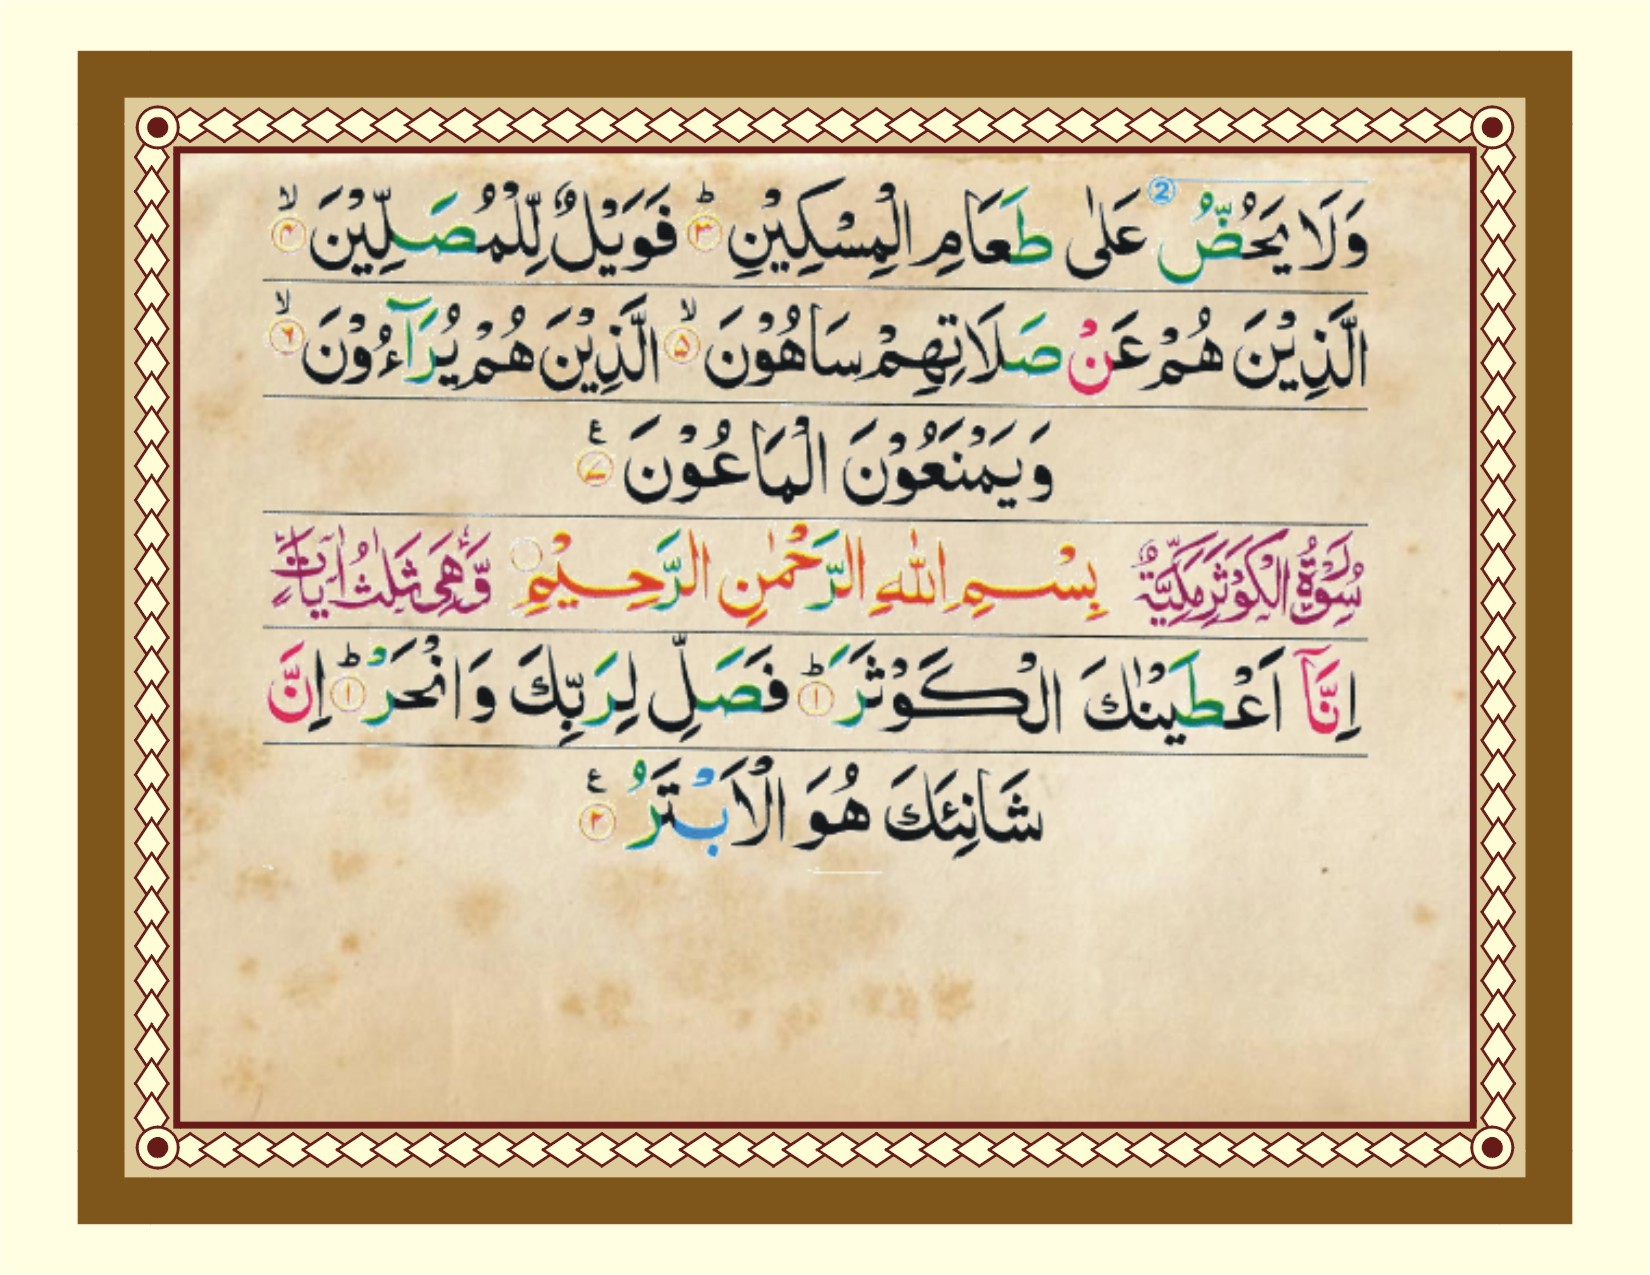 ② وَلَا يَحُضُّ عَلٰى طَعَامِ الْمِسْكِيْنِ ؕ ۳ فَوَيْلٌ لِّلْمُصَلِّيْنَ ۙ ۴
الَّذِيْنَ هُمْ عَنْ صَلَاتِهِمْ سَاهُوْنَ ۙ ۵ الَّذِيْنَ هُمْ يُرَآءُوْنَ ۙ ۶
وَيَمْنَعُوْنَ الْمَاعُوْنَ ۷ ع
سُوْرَةُ الْكَوْثَرِ مَكِّيَّةٌ بِسْمِ اللّٰهِ الرَّحْمٰنِ الرَّحِيْمِ وَّهِىَ ثَلٰثُ اٰيَاتٍ
اِنَّآ اَعْطَيْنٰكَ الْكَوْثَرَ ؕ ۱ فَصَلِّ لِرَبِّكَ وَانْحَرْ ؕ ۱ اِنَّ
شَانِئَكَ هُوَ الْاَبْتَرُ ۲ ع